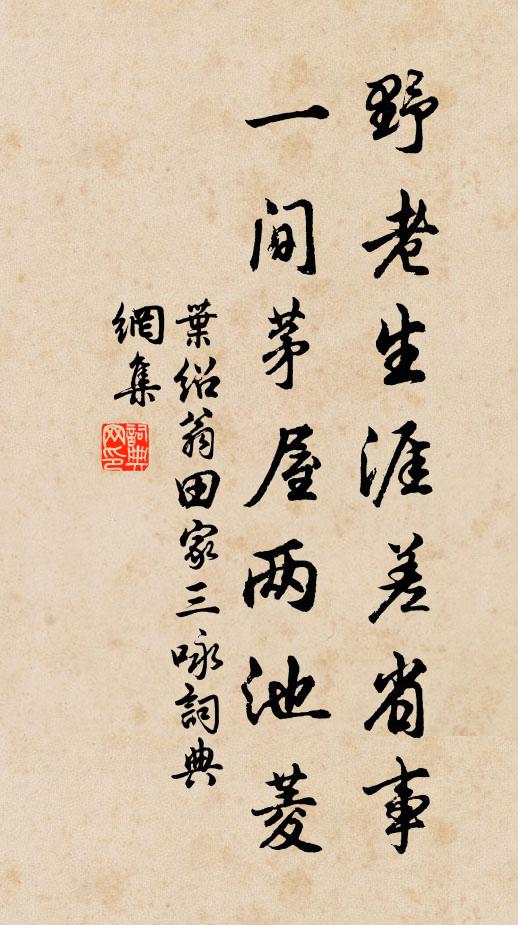 野老生涯差省事
一间茅屋两池菱
葉紹翁田家三咏詞典
網集
詞典
网印